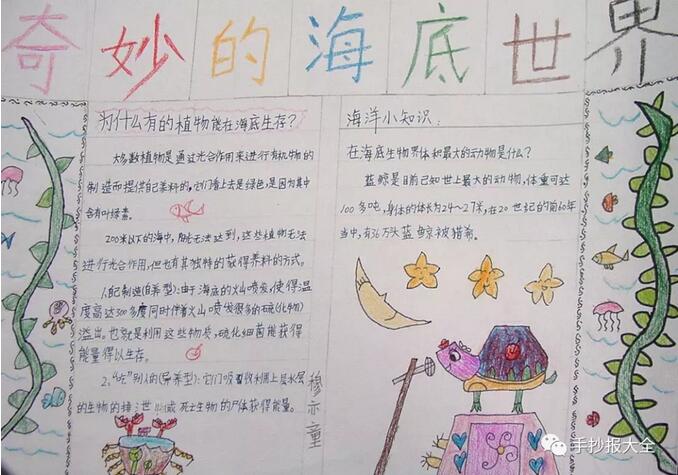 奇妙的海底世界
为什么有的植物能在海底生存?
大多数植物是通过光合作用来进行有机物的
制造而提供自己养料的,它们看上去是绿色,是因为其中
含有叶绿素。
200米以下的海中,阳光无法达到,这些植物无法
进行光合作用,但也有其独特的获得养料的方式。
1.配制造(自养型):由于海底的火山喷发,使得温
度高达300多摩同时伴着火山喷发很多的硫(化物)
溢出。也就是利用这些物质,硫化细菌能获得
能量得以生存。
2、"吃"别人的(异养型):它们吸着仪利用上层水层
的生物的排泄 或死亡生物的尸体获得能量。
穆亦童
海洋小知识:
在海底生物界体和最大的动物是什么?
蓝鲸是目前已知世上最大的动物,体重可达
100多吨,身体的体长为24~27米,在20世纪的前60年
当中,有36万头蓝鲸被猎杀。
手抄报大全